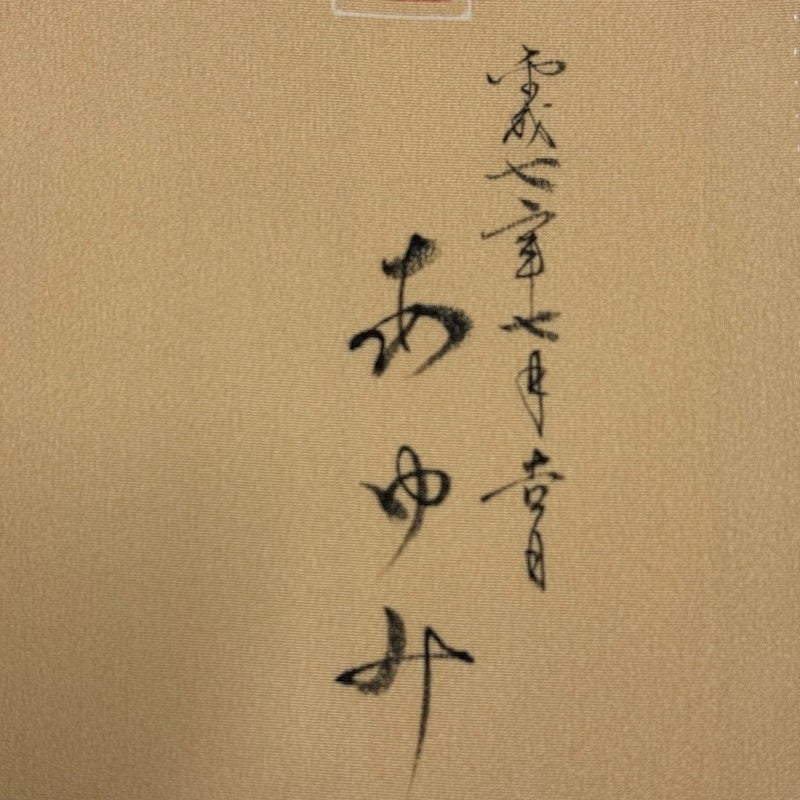 平成七年七月吉日
あゆみ